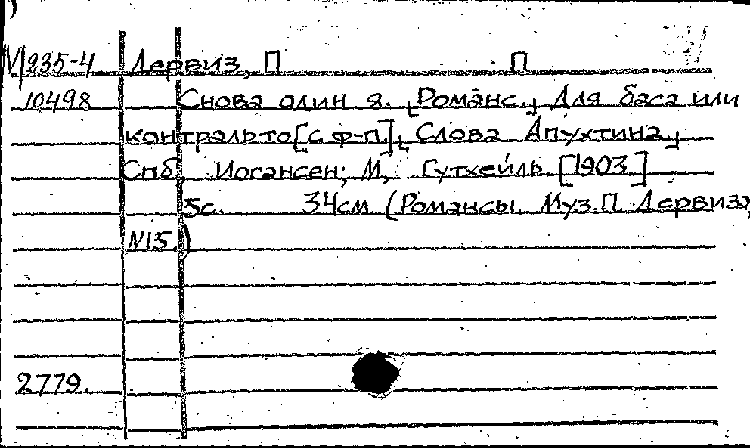 М 235-4 Дервиз, П П
10498 Снова один я. [Романс.] Для баса или
контральто [с ф-п]. [Слова Апухтина.]
Спб, Иогансен; М, Гутхейль. [1903]
5с. 34см. (Романсы. Муз. П. Дервиза,
N15.)
2779.